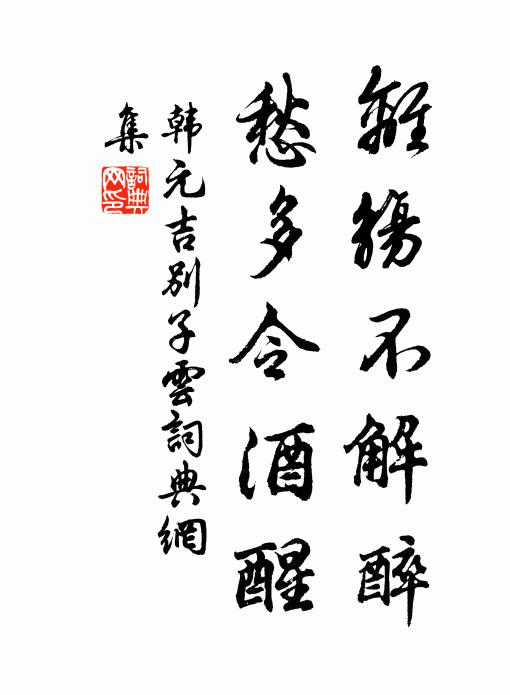 離觴不解醉
愁多令酒醒
韩元吉别子雲詞典網
集
詞典网印